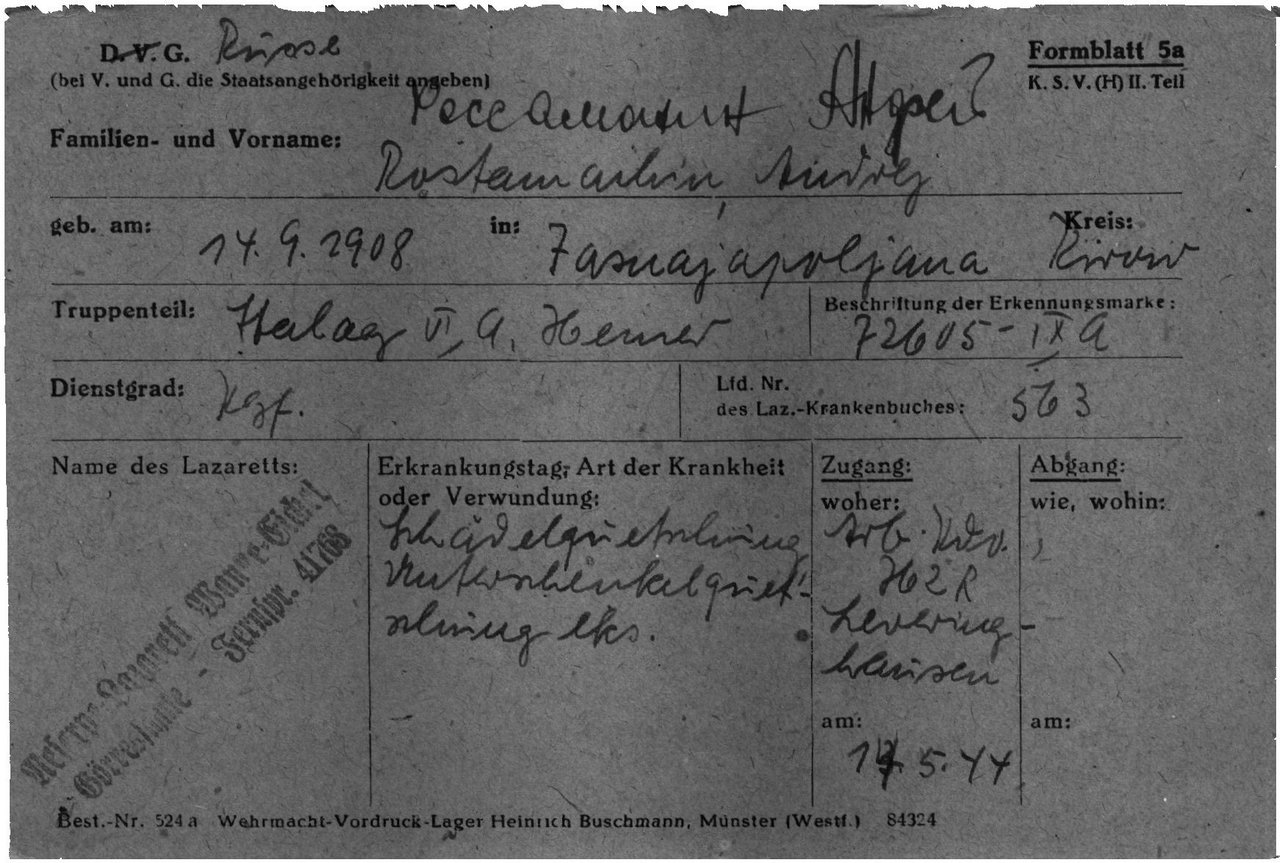 D. V. G. Russe
(bei V. und G. die Staatsangehörigkeit angeben)
Formblatt 5a
K. S. V. (H) II. Teil
Familien- und Vorname:
Rostamaihin, Andrej
geb. am: 14. 9. 1908 in: Jasnajapoljana Kreis: Kirow
Truppenteil: Stalag VI, A. Hemer
Beschriftung der Erkennungsmarke:
72605 - IX A
Dienstgrad: Kgf.
Lfd. Nr.
des Laz.-Krankenbuches: 563
Name des Lazaretts:
Reserve-Lazarett Wanne-Eickel
Görresschule - Fernspr. 41768
Erkrankungstag, Art der Krankheit
oder Verwundung:
Schädelquetschung
Unterschenkelquet-
schung lks.
Zugang:
woher:
Arb. Kdo.
Levering-
hausen
am:
17. 5. 44
Abgang:
wie, wohin:
am:
Best.-Nr. 524a Wehrmacht-Vordruck-Lager Heinrich Buschmann, Münster (Westf.) 84324